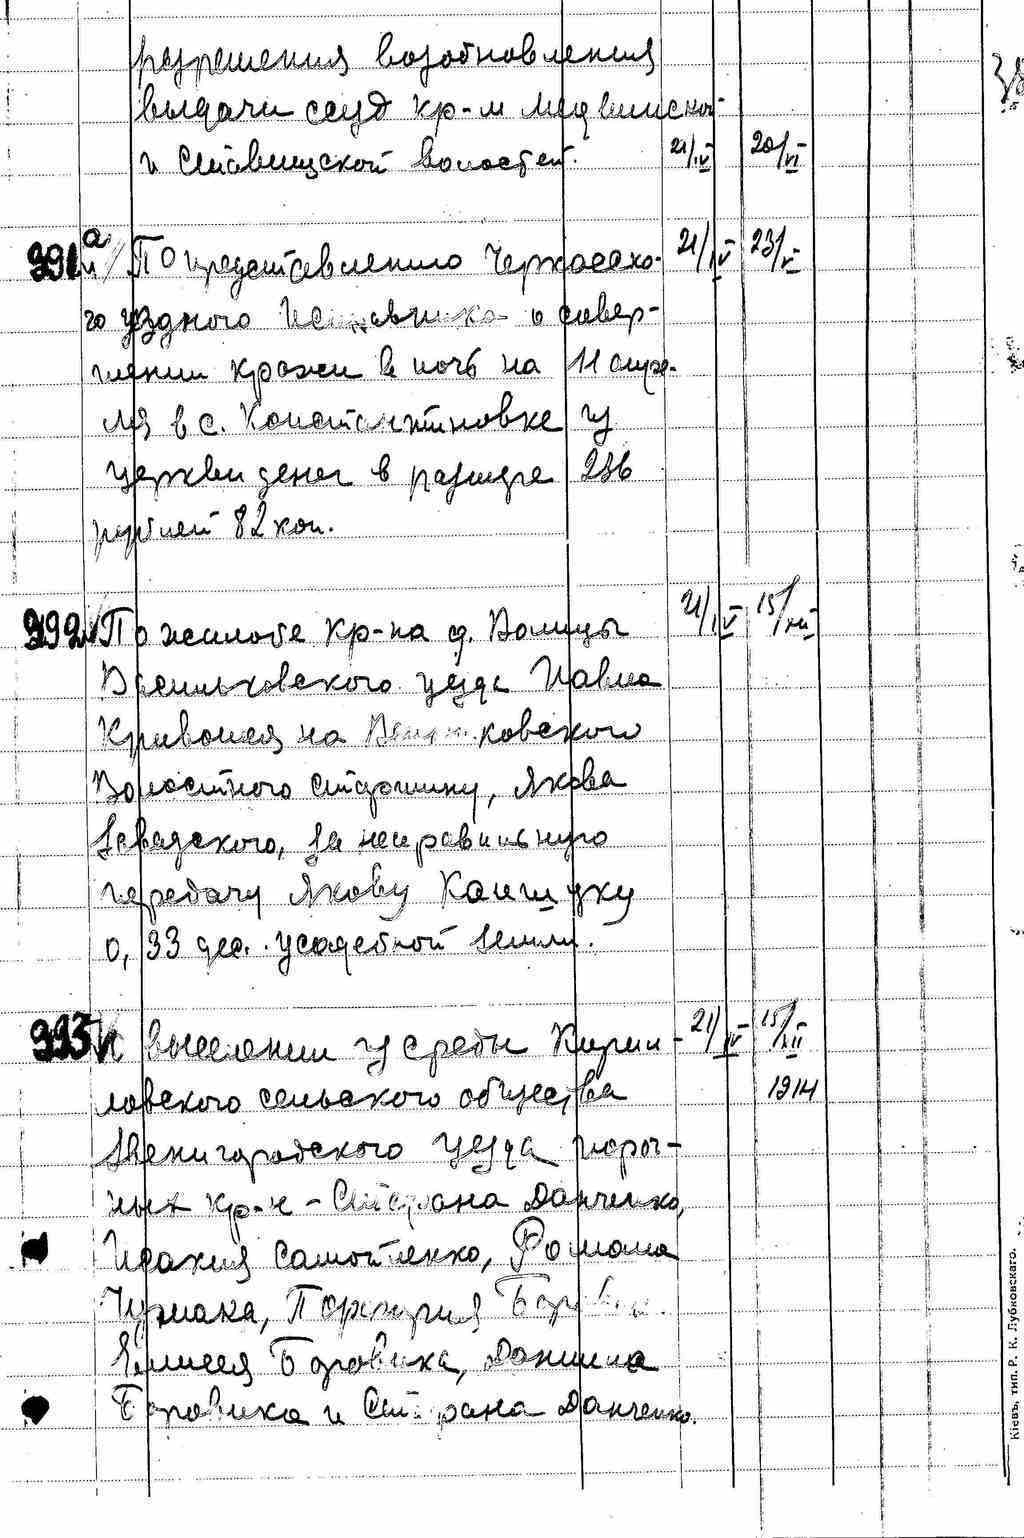 разрешения возобновления
выдачи ссуд кр-м Медвинской
и Ставищской волостей. 21/IV 20/VI
391а По представлению Черкасско- 21/IV 23/V
го уздного Исправника о совер-
шении кражи в ночь на 11 апре-
ля в с. Константиновке у
церкви денег в размере 236
рублей 82 коп.
392 По жалобе кр-на д. Волицы 21/IV 15/XII
Васильковского уезда Павла
Кривошея на ковского
Волостного старшину, Якова
Завадского, за неправильную
передачу Якову Канщуку
0,33 дес. усадебной земли.
393 О выселении из среды Кирил- 21/IV 15/XII
ловского сельского общества 1914
Звенигородского уезда пороч-
ных кр-н - Стефана Данченко,
Исакия Самотненко, Романа
Чумака, Порфирия
Елисея Боровика, Даниила
Боровика и Стефана Данченко.
38
Кіевъ, тип. Р. К. Лубковскаго.